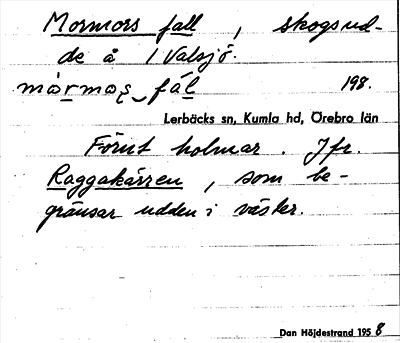 Mormors fall, skogsud-
de å 1 Valsjö.
mòrmoș fál 198.
Lerbäcks sn, Kumla hd, Örebro län
Förut holmar. Jfr.
Raggakärren, som be-
gränsar udden i väster.
Dan Höjdestrand 1958